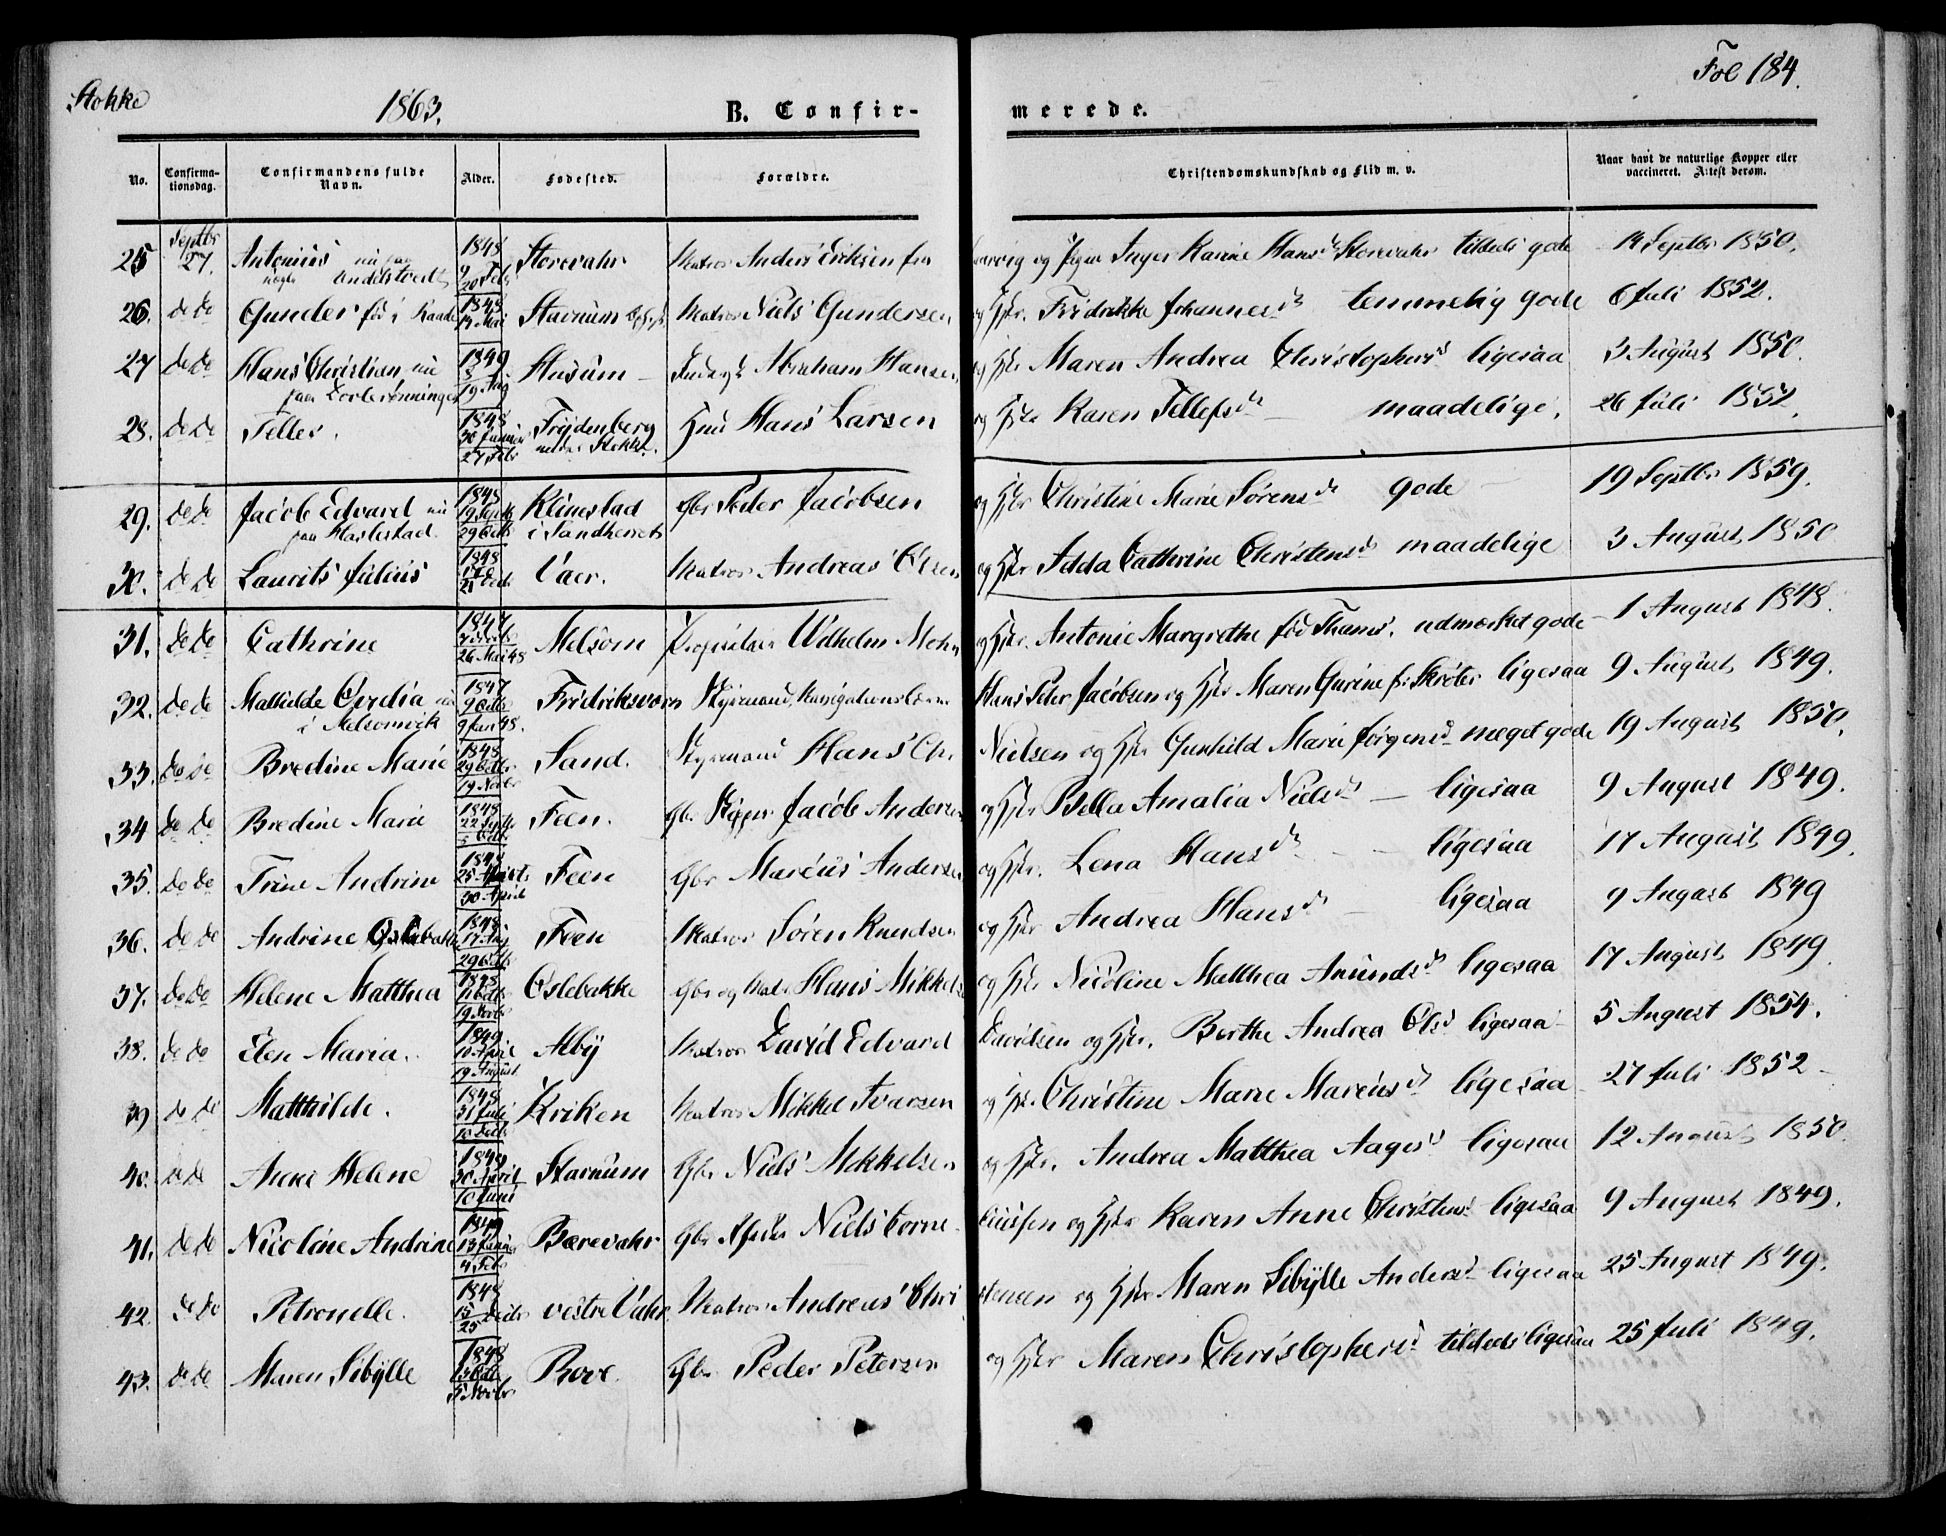 Stokke 1863. B. Confir- merede. Fol 184.
No. Confirma-tionsdag. Confirmandens fulde Navn. Alder. Fødested. Forældre. Christendomskundskab og Flid m. v. Naar havt de naturlige Kopper eller vaccineret. Attest derom.
25 Septbr 27. Antonius 1848 9 20 Febr Storevahr Matros Anders Eriksen fra og Pigen Inger Karine Hansd Storevahr tildels gode 14 Septbr 1850.
26. do do Gunder 1848 14 Mai Stavnum Matros Niels Gundersen og Hstr. Fridrikke Johannesd temmelig gode 6 Juli 1852.
27 do do Hans Christian nu paa 1849 3 19 Aug Husum Abraham Hansen og Hstr Maren Andrea Christophersd ligesaa 3 August 1850.
28. do do Tellef. 1848 30 Januar 27 Febr Frydenberg nedre Stokke. Hmd Hans Larsen og Hstr Karen Tellefsd maadelige. 26 Juli 1852.
29. do do Jacob Edvard nu paa Harlestad. 1848 19 Septb 29 Octbr Klinestad i Sandherred Gbr Peder Jacobsen og Hstr Christine Marie Sørensd gode 19 Septbr 1859.
30. do do Laurits Julius 1848 21 Decb Vaer. Matros Andreas Olsen og Hstr Adda Cathrine Christensd maadelige 3 August 1850
31. do do Cathrine 1847 26 Mai 48 Melsom Proprietair Wilhelm Mohn og Hstr. Antonie Margrethe fød Thams. udmærket gode 1 August 1848.
32. do do Mathilde Ovidia nu i Melsomvik 1847 9 Octbr 9 Jan 48. Fridriksværn Styrmand, Navigationslærer Hans Peter Jacobsen og Hstr Maren Gurine f. Skrøter ligesaa 9 August 1849.
33. do do Bredine Marie 1848 29 Octbr 19 Novbr Sand. Styrmand Hans Chr. Nielsen og Hstr Gunhild Marie Jørgensd meget gode 19 August 1850.
34 do do Bredine Marie 1848 22 Septb 5 Octbr Feen. Gbr. Skipper Jacob Andersen og Hstr Bella Amalia Nielsd ligesaa 9 August 1849.
35. do do Trine Andrine 1848 25 30 April Feen Gbr Marcus Andersen og Hstr. Lena Hansd ligesaa 17 August 1849.
36. do do Andrine Oslebakke 1848 17 Aug 29 Octbr Feen Matros Søren Knudsen og Hstr Andrea Hansd ligesaa 9 August 1849
37. do do Helene Matthea 1848 11 Octbr 19 Novbr Oslebakke Gbr og Matr Hans Mikkels og Hstr Nicoline Matthea Amundsd ligesaa 17 August 1849
38. do do Elen Maria. 1849 10 April 19 August Alby Matros David Edvard Davidsen og Hstr. Berthe Andrea Olsd ligesaa 5 August 1854.
39 do do Matthilde. 1848 31 Juli 10 Decb Kriken Matros Mikkel Ivarsen og Hstr. Christine Marie Marcusd ligesaa 27 Juli 1852
40. do do Anne Helene 1849 30 April 10 Juni Stavnum Gbr Niels Mikkelsen og Hstr. Andrea Matthea Aagesd ligesaa 12 August 1850.
41. do do Nicoline Andrine 1849 13 Januar 4 Febr Bærevahr Gbr Niels Corneliusen og Hstr Karen Anne Christensd ligesaa 9 August 1849.
42. do do Petronelle. 1848 15 25 Decbr vestre Vahr Matros Andreas Christensen og Hstr Maren Sibylle Andersd ligesaa 25 August 1849.
43. do do Maren Sibylle 1848 5 Novbr Rove. Gbr Peder Petersen og Hstr Maren Christophersd tildels ligesaa 25 Juli 1849.